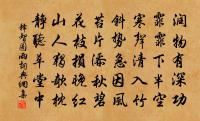 润物有深功
霏霏下半空
寒声清入竹
斜势急因风
苔片添秋碧
花枝损晚红
山人欹枕
静听草堂中
释智圆雨词典网集